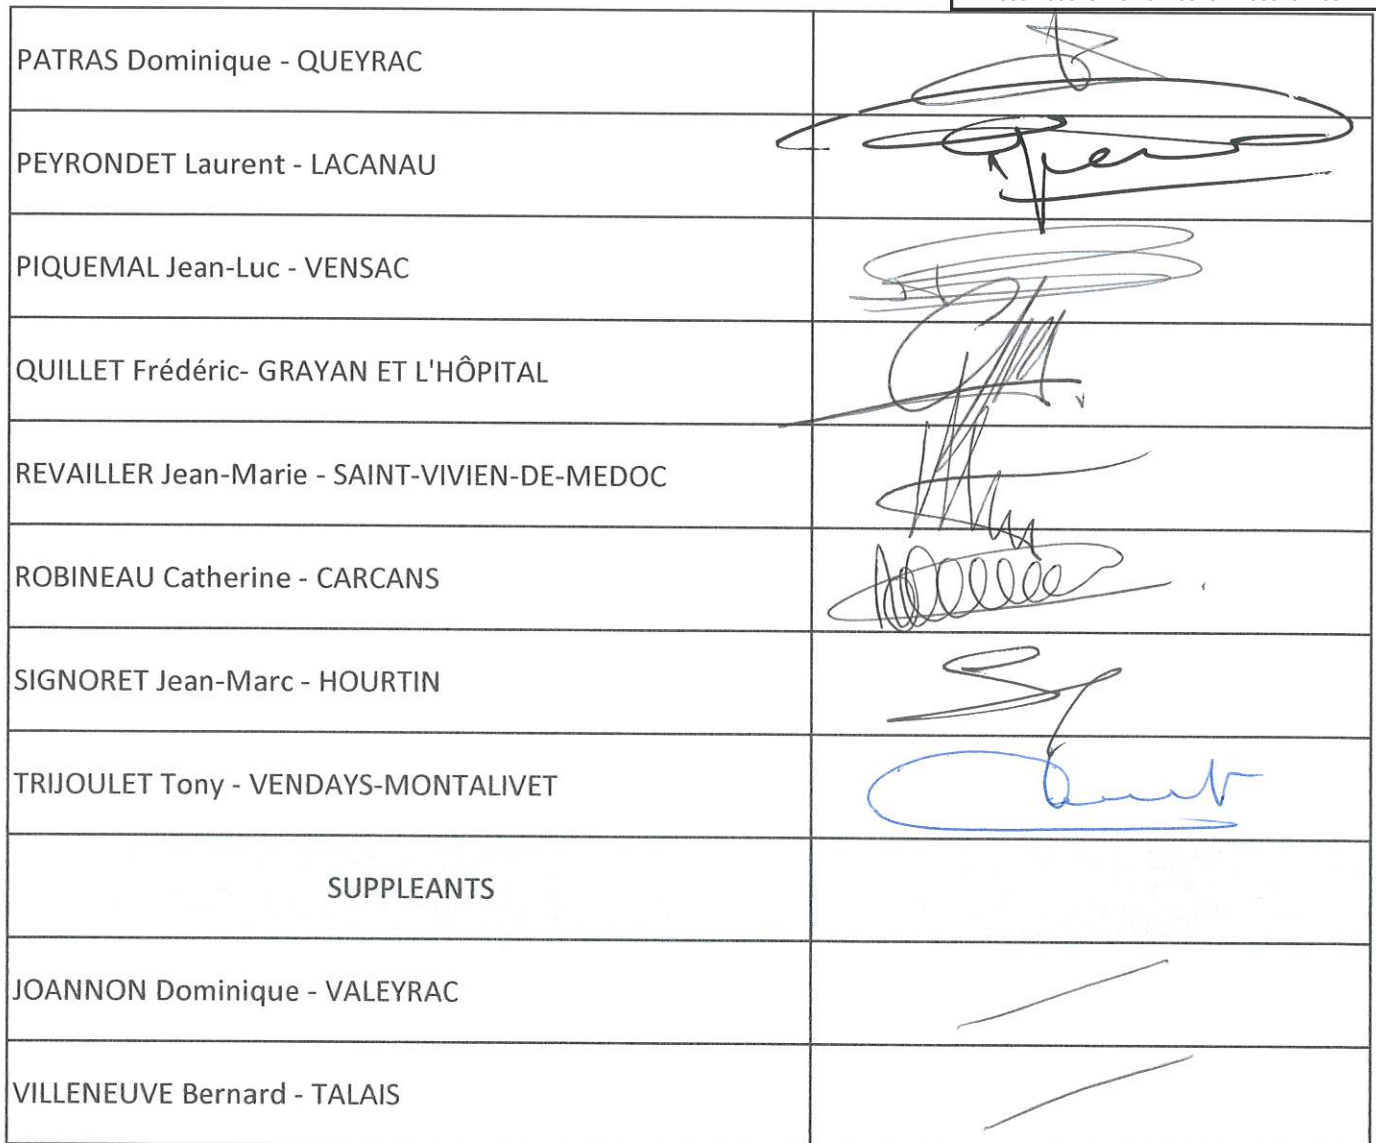 PATRAS Dominique - QUEYRAC
PEYRONDET Laurent - LACANAU
PIQUEMAL Jean-Luc - VENSAC
QUILLET Frédéric- GRAYAN ET L'HÔPITAL
REVAILLER Jean-Marie - SAINT-VIVIEN-DE-MEDOC
ROBINEAU Catherine - CARCANS
SIGNORET Jean-Marc - HOURTIN
TRIJOULET Tony - VENDAYS-MONTALIVET
SUPPLEANTS
JOANNON Dominique - VALEYRAC
VILLENEUVE Bernard - TALAIS